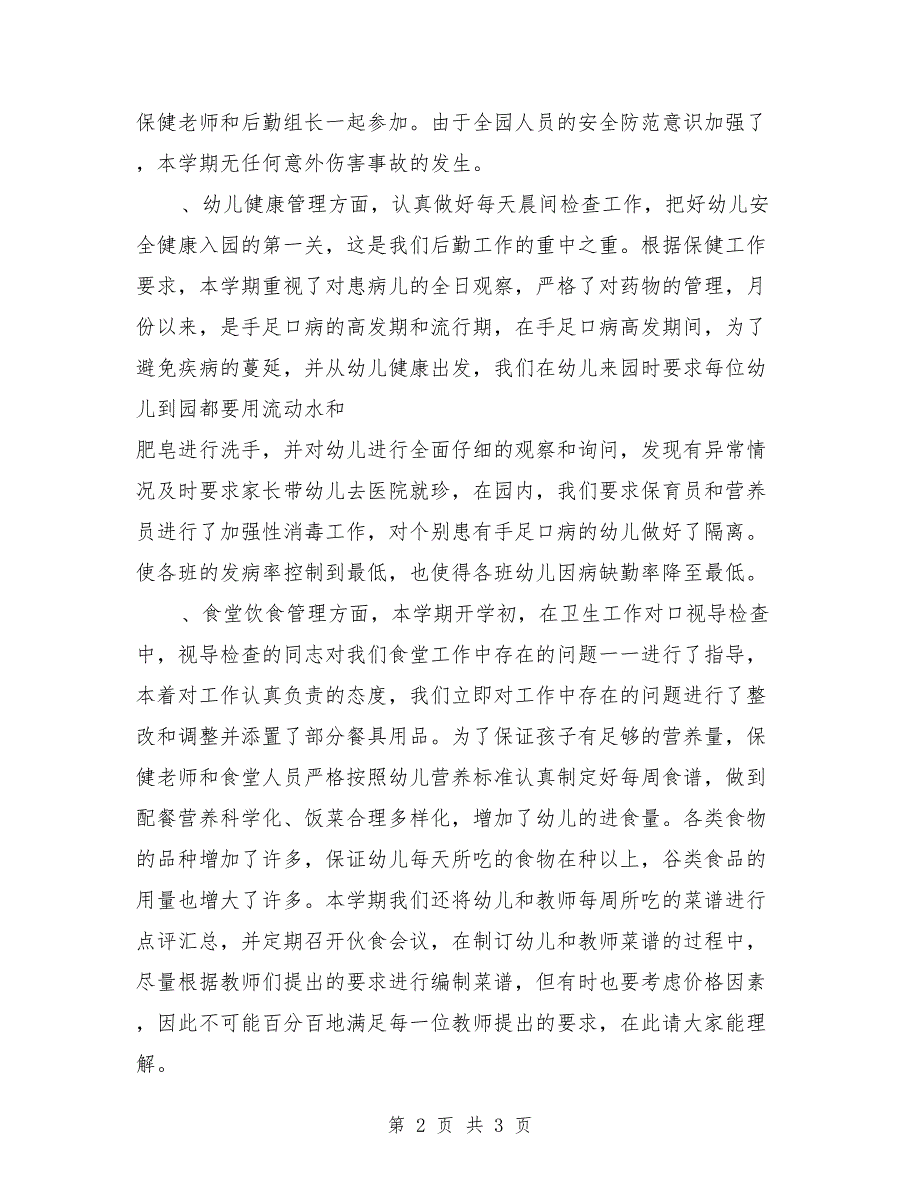 保健老师和后勤组长一起参加。由于全园人员的安全防范意识加强了
，本学期无任何意外伤害事故的发生。
、幼儿健康管理方面，认真做好每天晨间检查工作，把好幼儿安
全健康入园的第一关，这是我们后勤工作的重中之重。根据保健工作
要求，本学期重视了对患病儿的全日观察，严格了对药物的管理，月
份以来，是手足口病的高发期和流行期，在手足口病高发期间，为了
避免疾病的蔓延，并从幼儿健康出发，我们在幼儿来园时要求每位幼
儿到园都要用流动水和
肥皂进行洗手，并对幼儿进行全面仔细的观察和询问，发现有异常情
况及时要求家长带幼儿去医院就珍，在园内，我们要求保育员和营养
员进行了加强性消毒工作，对个别患有手足口病的幼儿做好了隔离。
使各班的发病率控制到最低，也使得各班幼儿因病缺勤率降至最低。
、食堂饮食管理方面，本学期开学初，在卫生工作对口视导检查
中，视导检查的同志对我们食堂工作中存在的问题一一进行了指导，
本着对工作认真负责的态度，我们立即对工作中存在的问题进行了整
改和调整并添置了部分餐具用品。为了保证孩子有足够的营养量，保
健老师和食堂人员严格按照幼儿营养标准认真制定好每周食谱，做到
配餐营养科学化、饭菜合理多样化，增加了幼儿的进食量。各类食物
的品种增加了许多，保证幼儿每天所吃的食物在种以上，谷类食品的
用量也增大了许多。本学期我们还将幼儿和教师每周所吃的菜谱进行
点评汇总，并定期召开伙食会议，在制订幼儿和教师菜谱的过程中，
尽量根据教师们提出的要求进行编制菜谱，但有时也要考虑价格因素
，因此不可能百分百地满足每一位教师提出的要求，在此请大家能理
解。
第 2 页 共 3 页